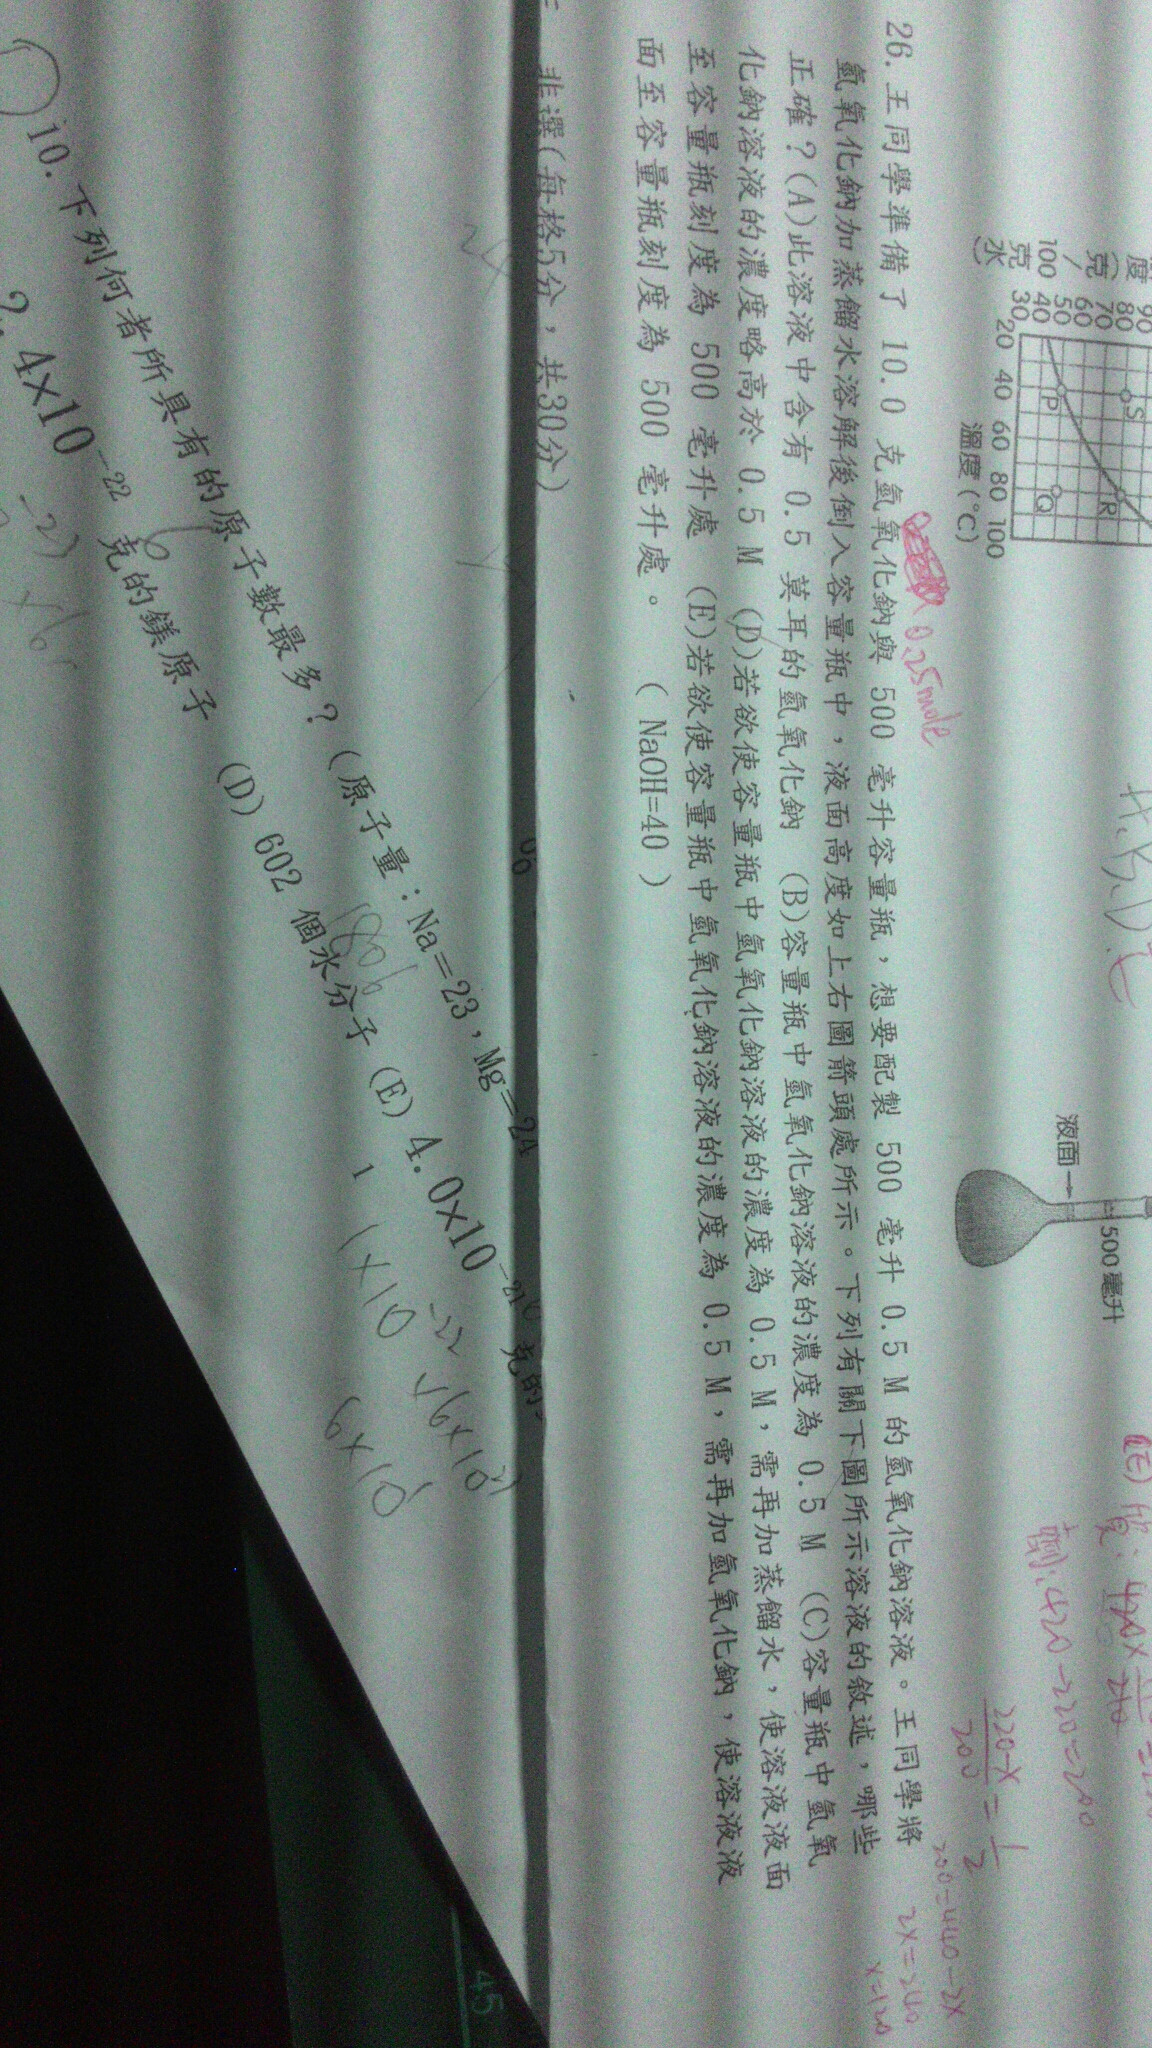 度(克/100克水)
90
80
70
60
50
40
30
20 40 60 80 100
溫度(°C)
S
P
R
Q
液面→
500毫升
0.25mole
26.王同學準備了 10.0 克氫氧化鈉與 500 毫升容量瓶，想要配製 500 毫升 0.5 M 的氫氧化鈉溶液。王同學將
氫氧化鈉加蒸餾水溶解後倒入容量瓶中，液面高度如上右圖箭頭處所示。下列有關下圖所示溶液的敘述，哪些
正確？(A)此溶液中含有 0.5 莫耳的氫氧化鈉 (B)容量瓶中氫氧化鈉溶液的濃度為 0.5 M (C)容量瓶中氫氧
化鈉溶液的濃度略高於 0.5 M (D)若欲使容量瓶中氫氧化鈉溶液的濃度為 0.5 M，需再加蒸餾水，使溶液液面
至容量瓶刻度為 500 毫升處 (E)若欲使容量瓶中氫氧化鈉溶液的濃度為 0.5 M，需再加氫氧化鈉，使溶液液
面至容量瓶刻度為 500 毫升處。 ( NaOH=40 )
非選(每格5分，共30分)
剩:420-220=200
220-x/200=1/2
200=440-2x
2x=240
x=120
10.下列何者所具有的原子數最多？(原子量：Na＝23，Mg＝24
4×10⁻²² 克的鎂原子 (D) 602 個水分子 (E) 4.0×10⁻²¹ 克的
1806
1×10⁻²² × 6×10²³
6×10¹
45